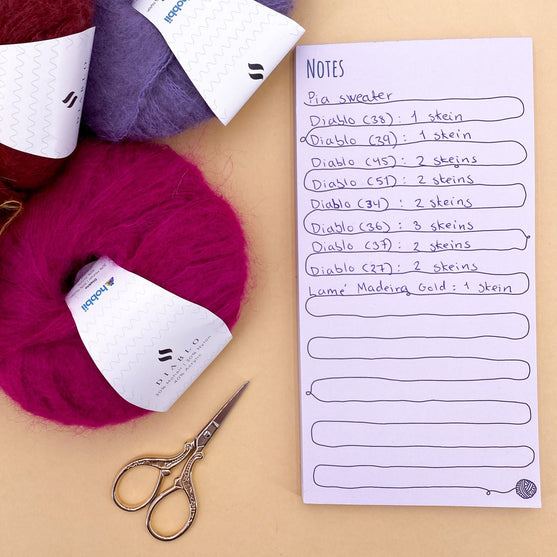 NOTES
Pia sweater
Diablo (38) : 1 skein
Diablo (39) : 1 skein
Diablo (45) : 2 skeins
Diablo (51) : 2 skeins
Diablo (34) : 2 skeins
Diablo (36) : 3 skeins
Diablo (37) : 2 skeins
Diablo (27) : 2 skeins
Lamé Madeira Gold : 1 skein
DIABLO
hobbii
hobbii
hobbii
DIABLO
30% Mohair | 30% Nylon
40% Acrylic